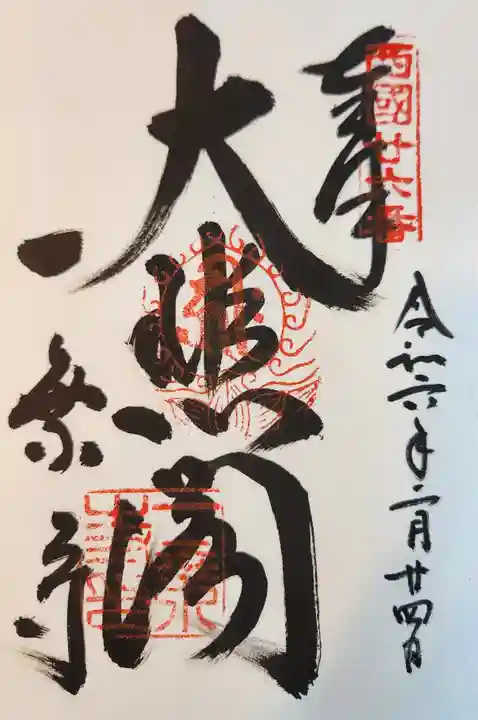 奉
西國廿六番
令和六年二月廿四日
大悲閣
一乗寺